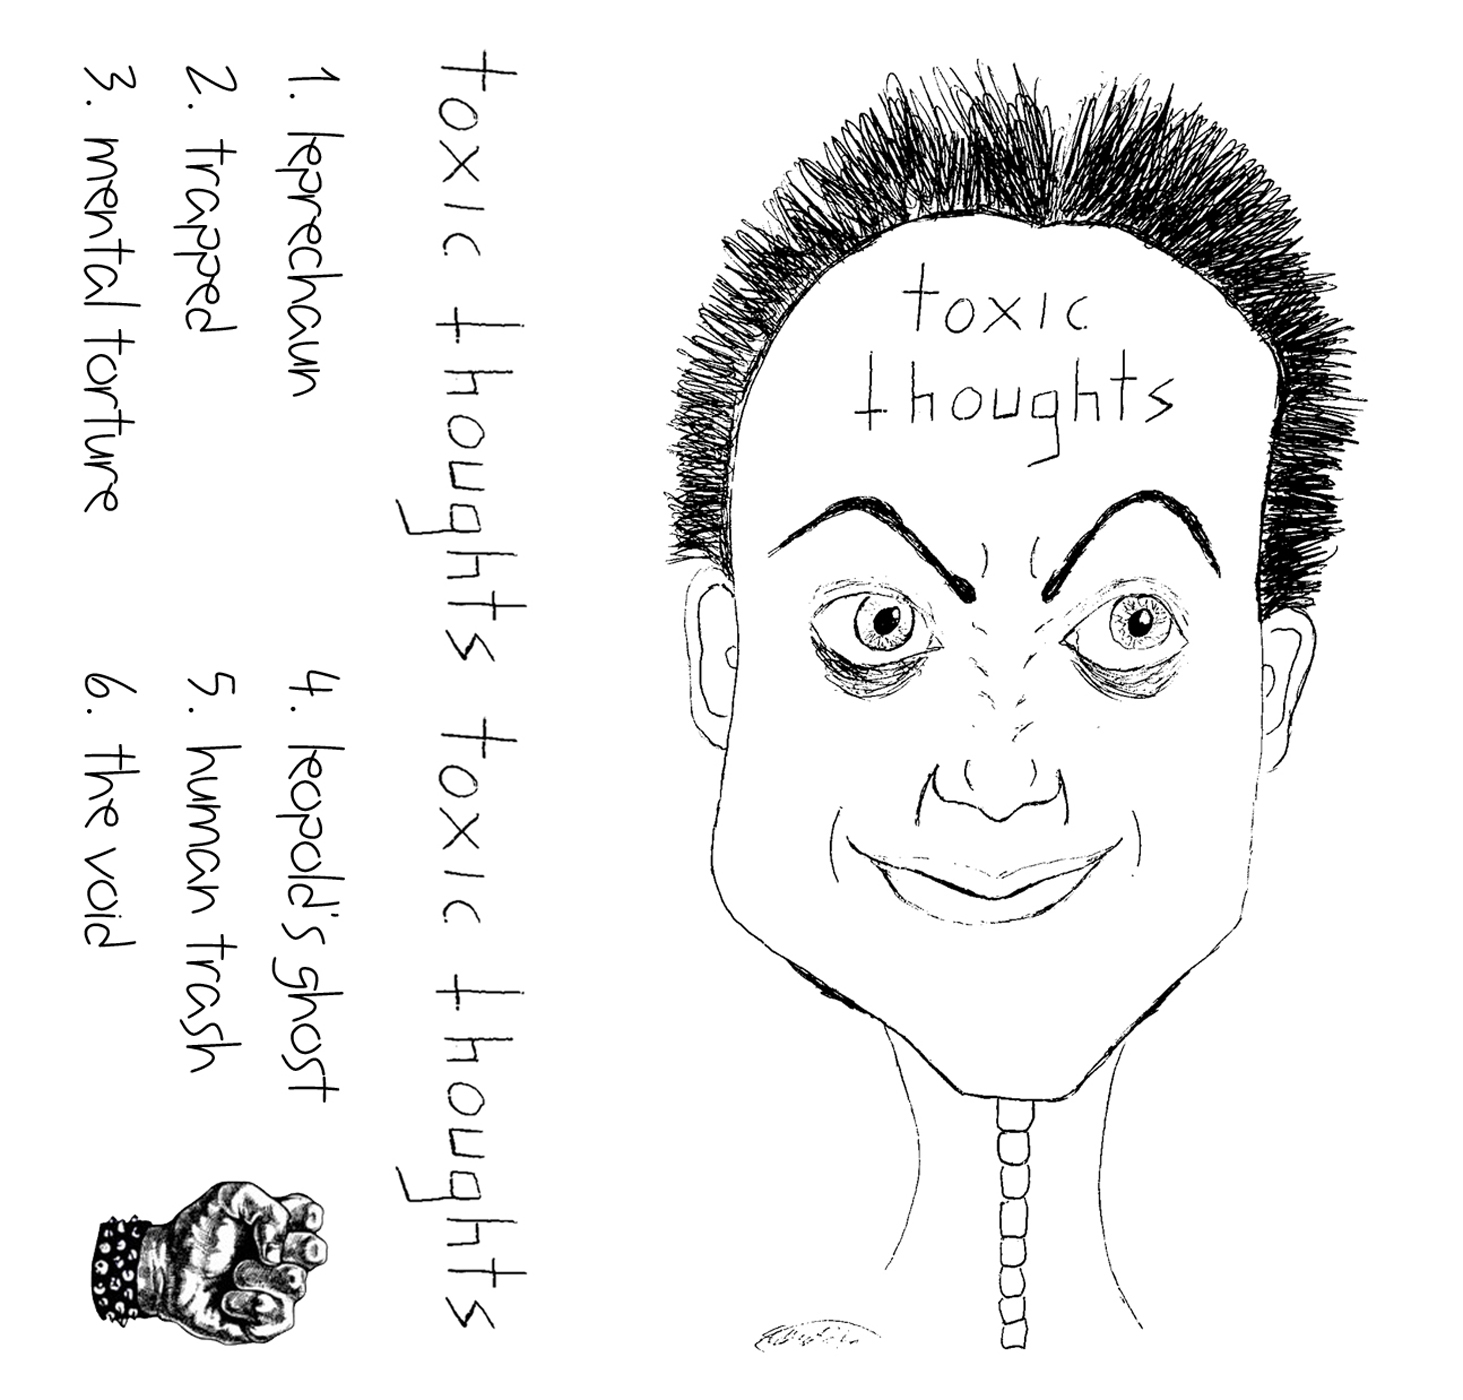 toxic thoughts toxic thoughts
1. leprechaun
2. trapped
3. mental torture
4. leopold's ghost
5. human trash
6. the void
toxic
thoughts